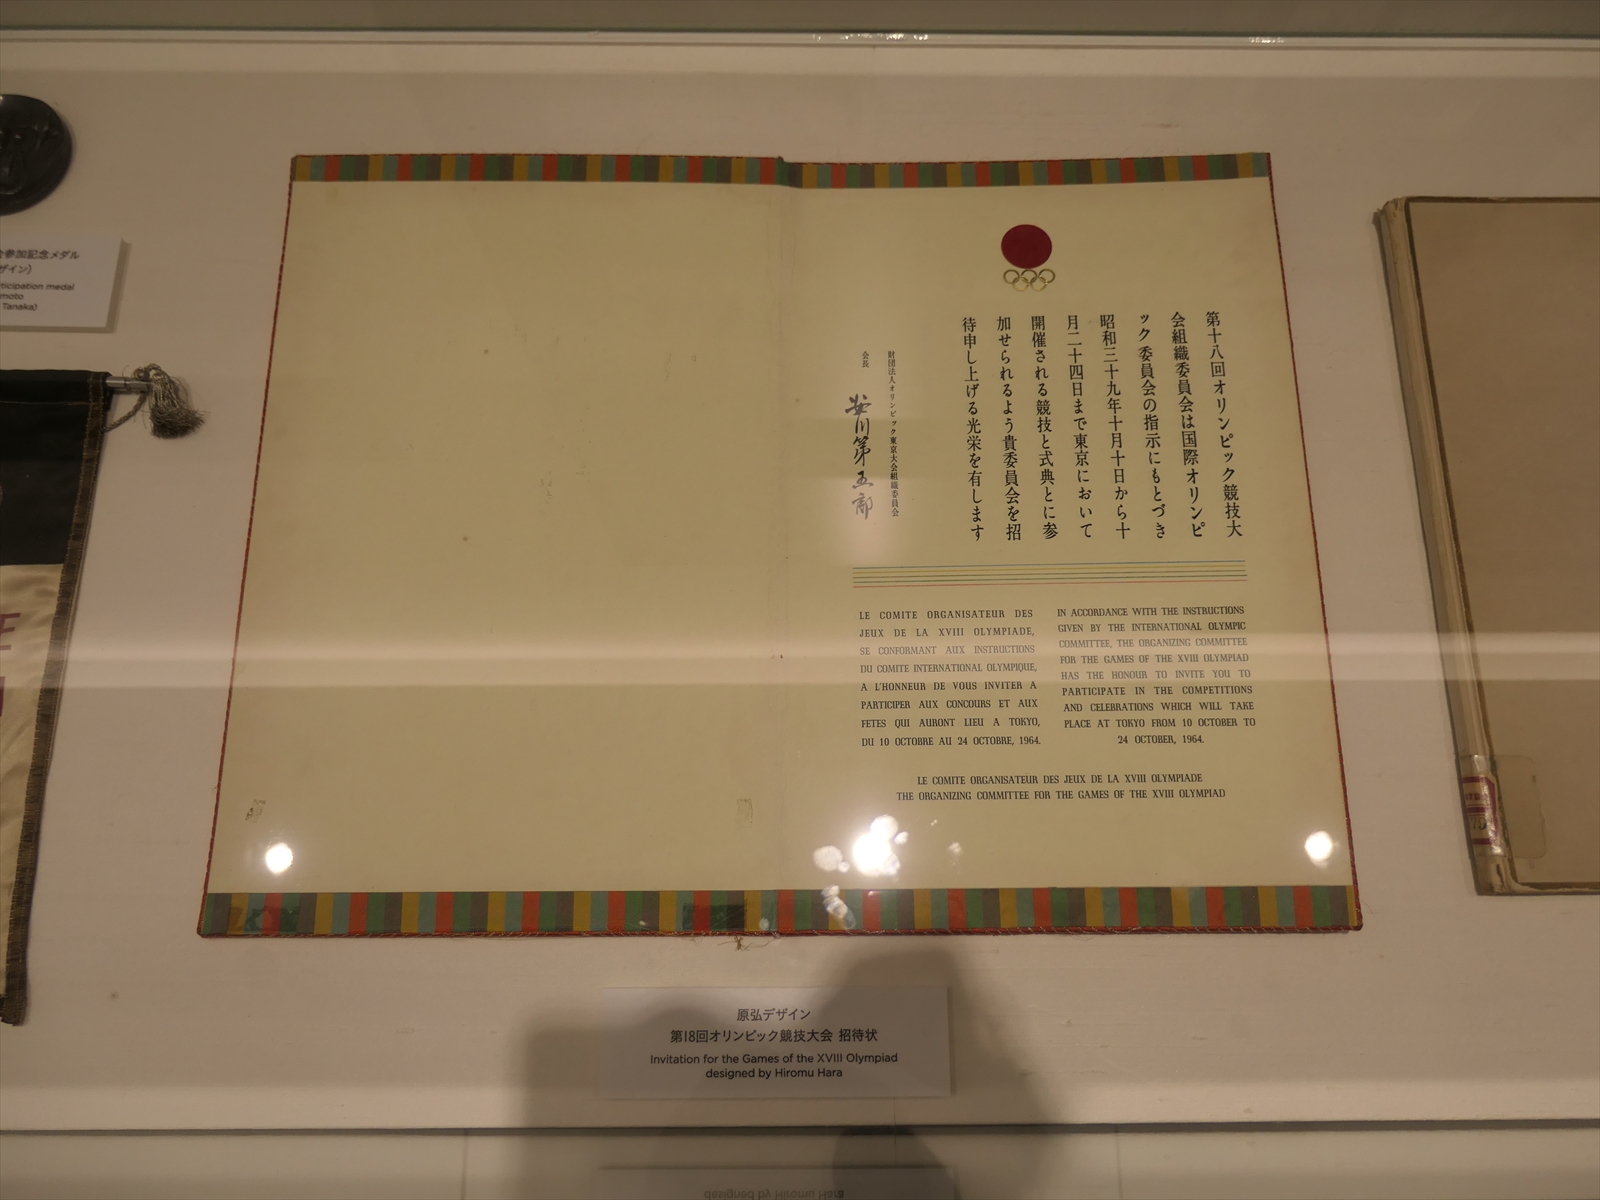 参加記念メダル
ザイン)
ticipation medal
moto
Tanaka)
第十八回オリンピック競技大
会組織委員会は国際オリンピ
ック委員会の指示にもとづき
昭和三十九年十月十日から十
月二十四日まで東京において
開催される競技と式典とに参
加せられるよう貴委員会を招
待申し上げる光栄を有します
財団法人オリンピック東京大会組織委員会
会長
安川第五郎
LE COMITE ORGANISATEUR DES
JEUX DE LA XVIII OLYMPIADE,
SE CONFORMANT AUX INSTRUCTIONS
DU COMITE INTERNATIONAL OLYMPIQUE,
A L'HONNEUR DE VOUS INVITER A
PARTICIPER AUX CONCOURS ET AUX
FETES QUI AURONT LIEU A TOKYO,
DU 10 OCTOBRE AU 24 OCTOBRE, 1964.
IN ACCORDANCE WITH THE INSTRUCTIONS
GIVEN BY THE INTERNATIONAL OLYMPIC
COMMITTEE, THE ORGANIZING COMMITTEE
FOR THE GAMES OF THE XVIII OLYMPIAD
HAS THE HONOUR TO INVITE YOU TO
PARTICIPATE IN THE COMPETITIONS
AND CELEBRATIONS WHICH WILL TAKE
PLACE AT TOKYO FROM 10 OCTOBER TO
24 OCTOBER, 1964.
LE COMITE ORGANISATEUR DES JEUX DE LA XVIII OLYMPIADE
THE ORGANIZING COMMITTEE FOR THE GAMES OF THE XVIII OLYMPIAD
原弘デザイン
第18回オリンピック競技大会 招待状
Invitation for the Games of the XVIII Olympiad
designed by Hiromu Hara